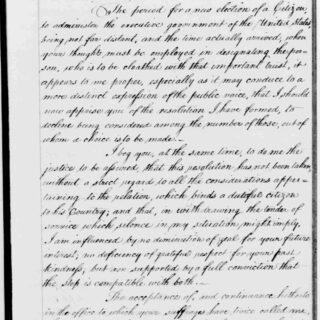 The period for a new election of a Citizen,
to administer the executive government of the United States,
being not far distant, and the time actually arrived, when
your thoughts must be employed in designating the per-
son, who is to be cloathed with that important trust, it
appears to me proper, especially as it may conduce to a
more distinct expression of the public voice, that I should
now apprise you of the resolution I have formed, to
decline being considered among the number of those, out of
whom a choice is to be made.
I beg you, at the same time, to do me the
justice to be assured, that this resolution has not been taken,
without a strict regard to all the considerations apper-
taining to the relation, which binds a dutiful citizen
to his Country; and that, in withdrawing the tender of
service which silence in my situation might imply,
I am influenced by no diminution of zeal for your future
interest; no deficiency of grateful respect for your past
kindness; but am supported by a full conviction that
the step is compatible with both.
The acceptance of, and continuance hitherto
in the office to which your suffrages have twice called me,